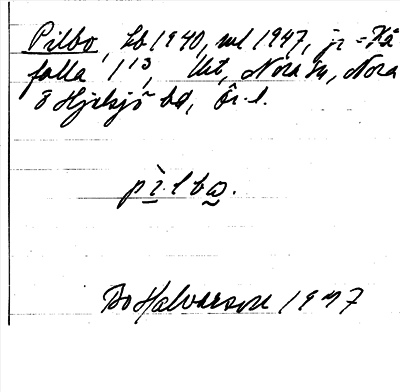 Pilbo, Lb 1940, ml 1947, jr = Kå
falla 1¹³, Ukt, Nora sn, Nora
o Hjulsjö bd, Ör. l.
pì.lbω.
Bo Halvarson 1947